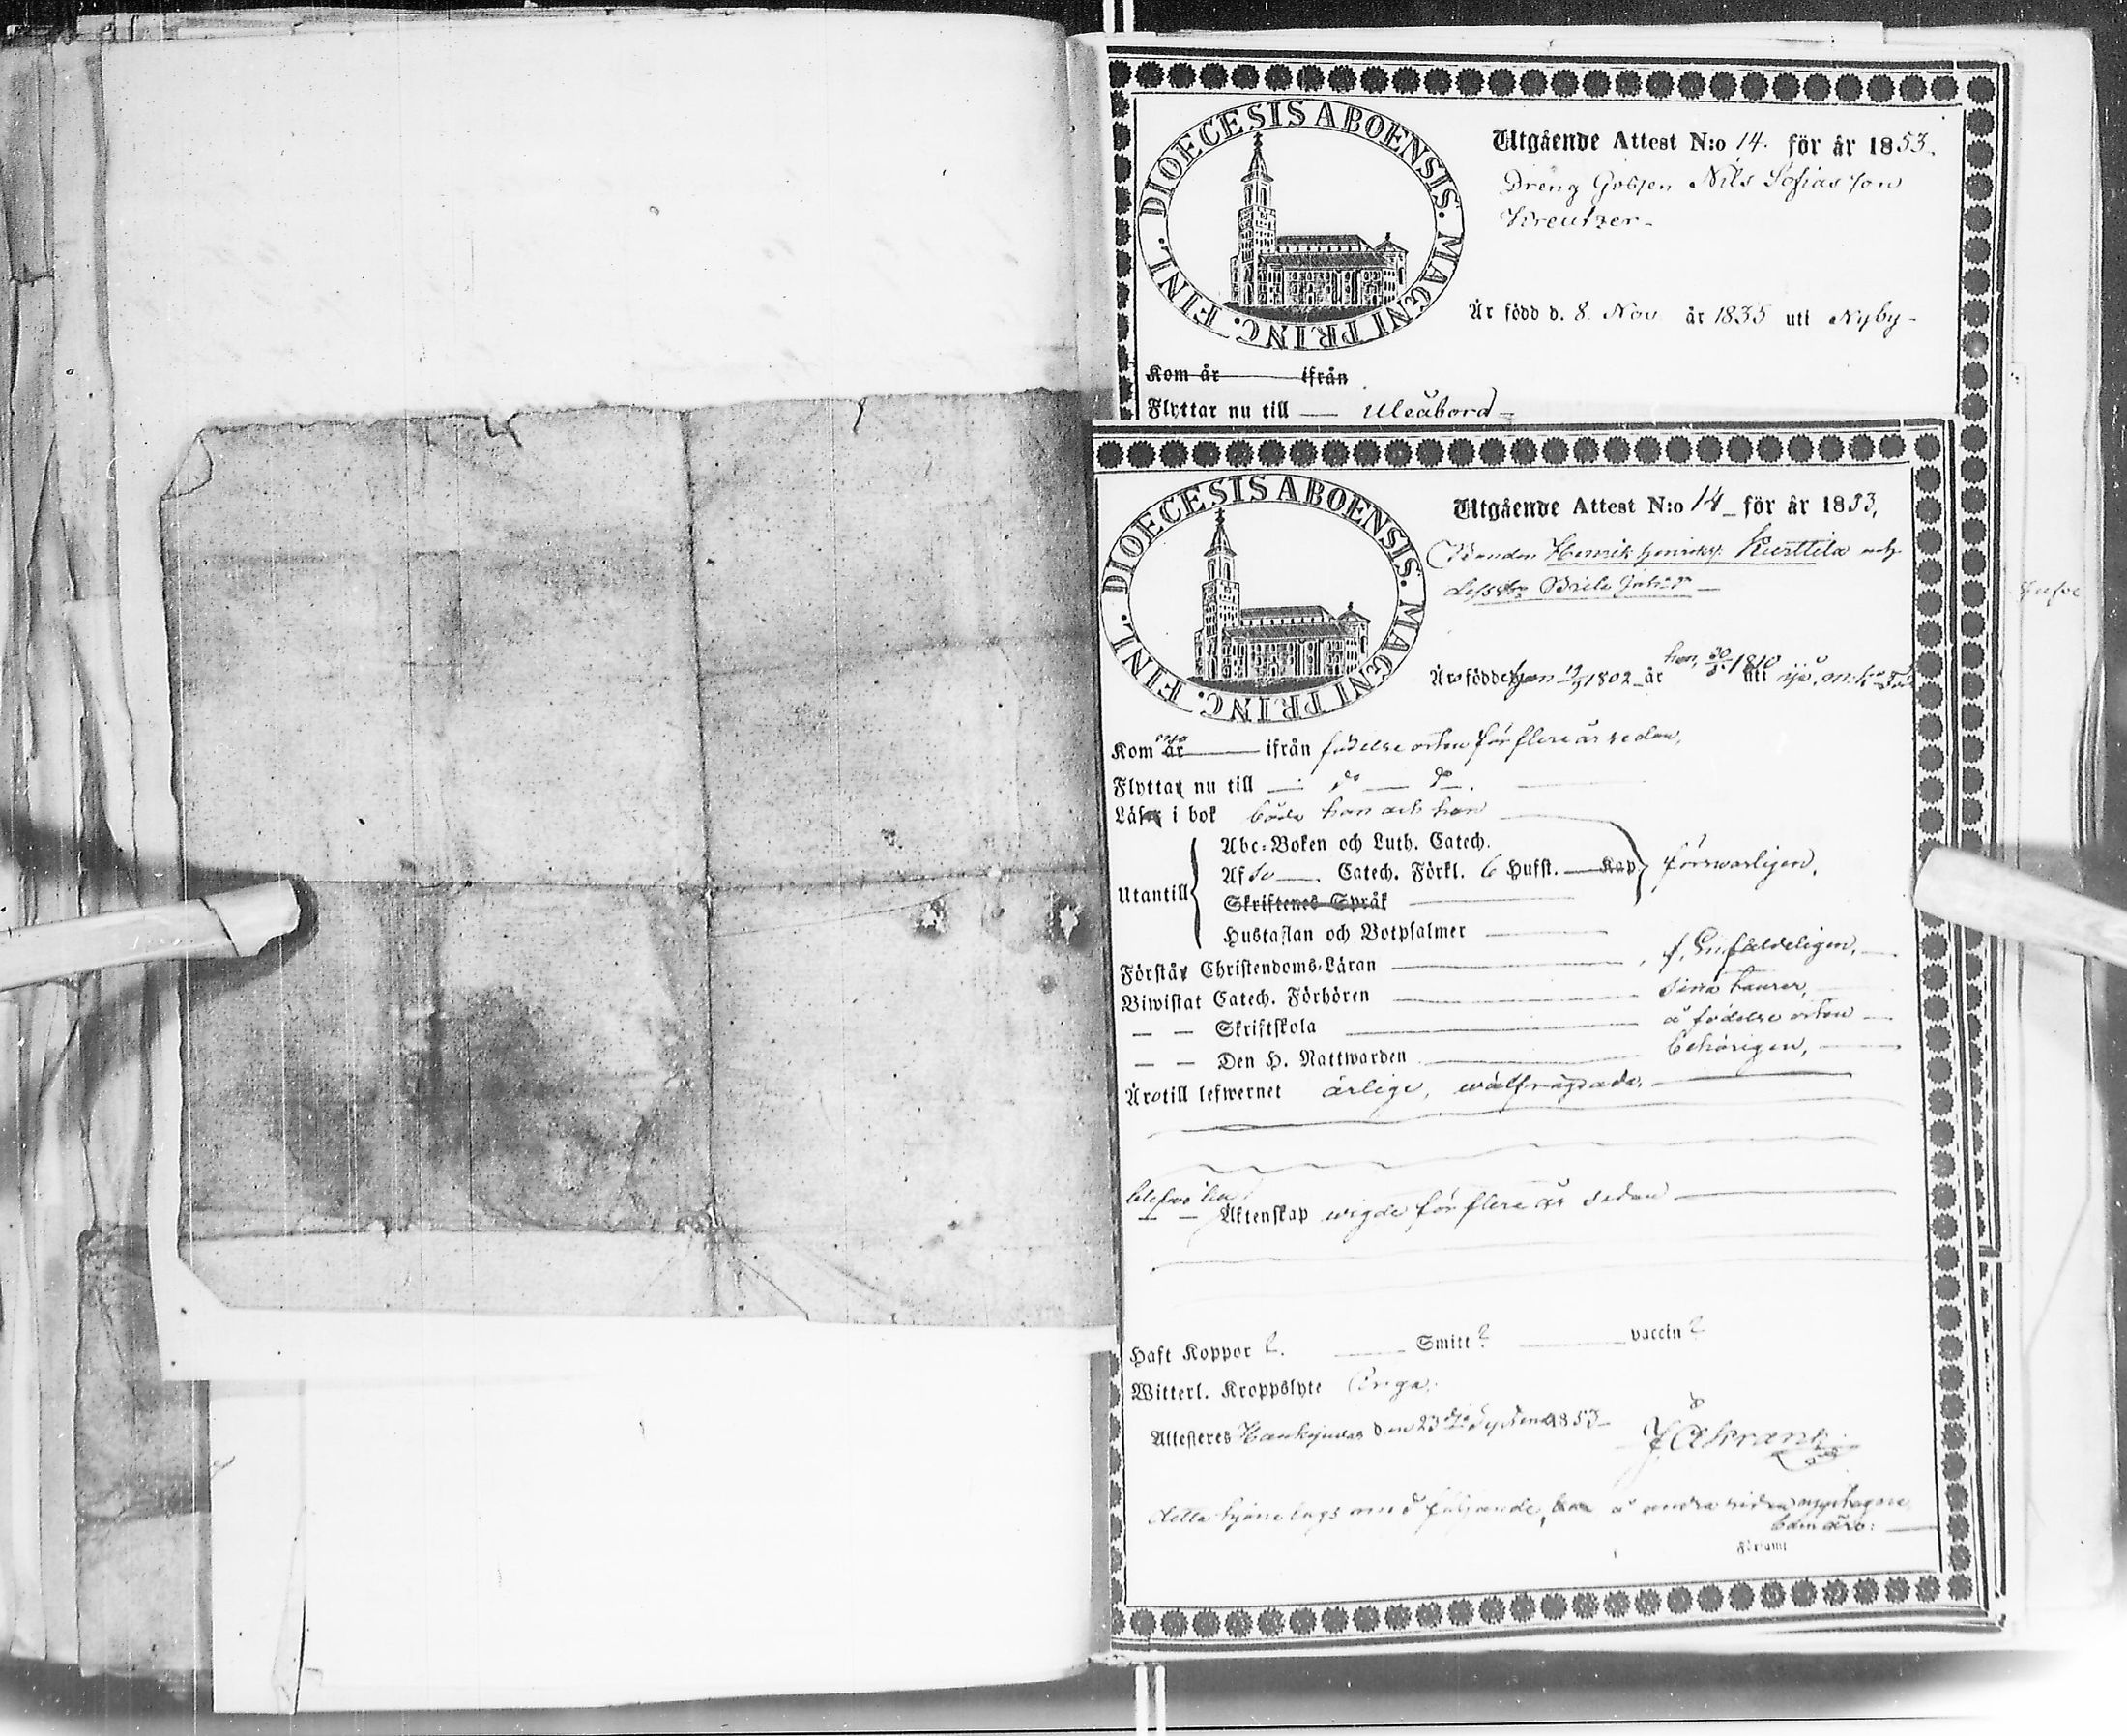 DIOECESIS ABOENSIS. MAGNI PRINC. FINL.
Utgående Attest N:o 14. för år 1853.
Dreng Gossen Nils Sofiasson
Kreutzer-
Är född d. 8. Nov år 1835 uti Nyby-
Kom år ifrån
Flyttar nu till — Uleåborg
DIOECESIS ABOENSIS. MAGNI PRINC. FINL.
Utgående Attest N:o 14 för år 1853,
Bonden Henrik Henriks: Kurttila och
dess Brita
Äro födde han 1802 år hon 1810 uti
Kom ifrån födelse orten för flere år sedan,
Flytta nu till — do — do.
Läsa i bok både han och hon
Utantill
Abc-Boken och Luth. Catech.
Af do Catech. Förkl. 6 Hufst. Kap
försvarligen,
Skriftenes Språk
Hustaflan och Botpsalmer
Förstå Christendoms-Läran f. Enfaldeligen,
Biwistat Catech. Förhören sina kurser,
— — Skriftskola å födelse orten
— — Den H. Nattwarden behörigen,
Äro till lefwernet ärlige, wälfrägdade,
Äktenskap wigde för flere år sedan
Haft Koppor ?. Smitt ? vaccin ?
Witterl. Kroppslyte Inga.
Attesteras Haukipudas den 23 1853
detta hjonelags med följande, å andra sidan upptagne
barn äro:
Församl